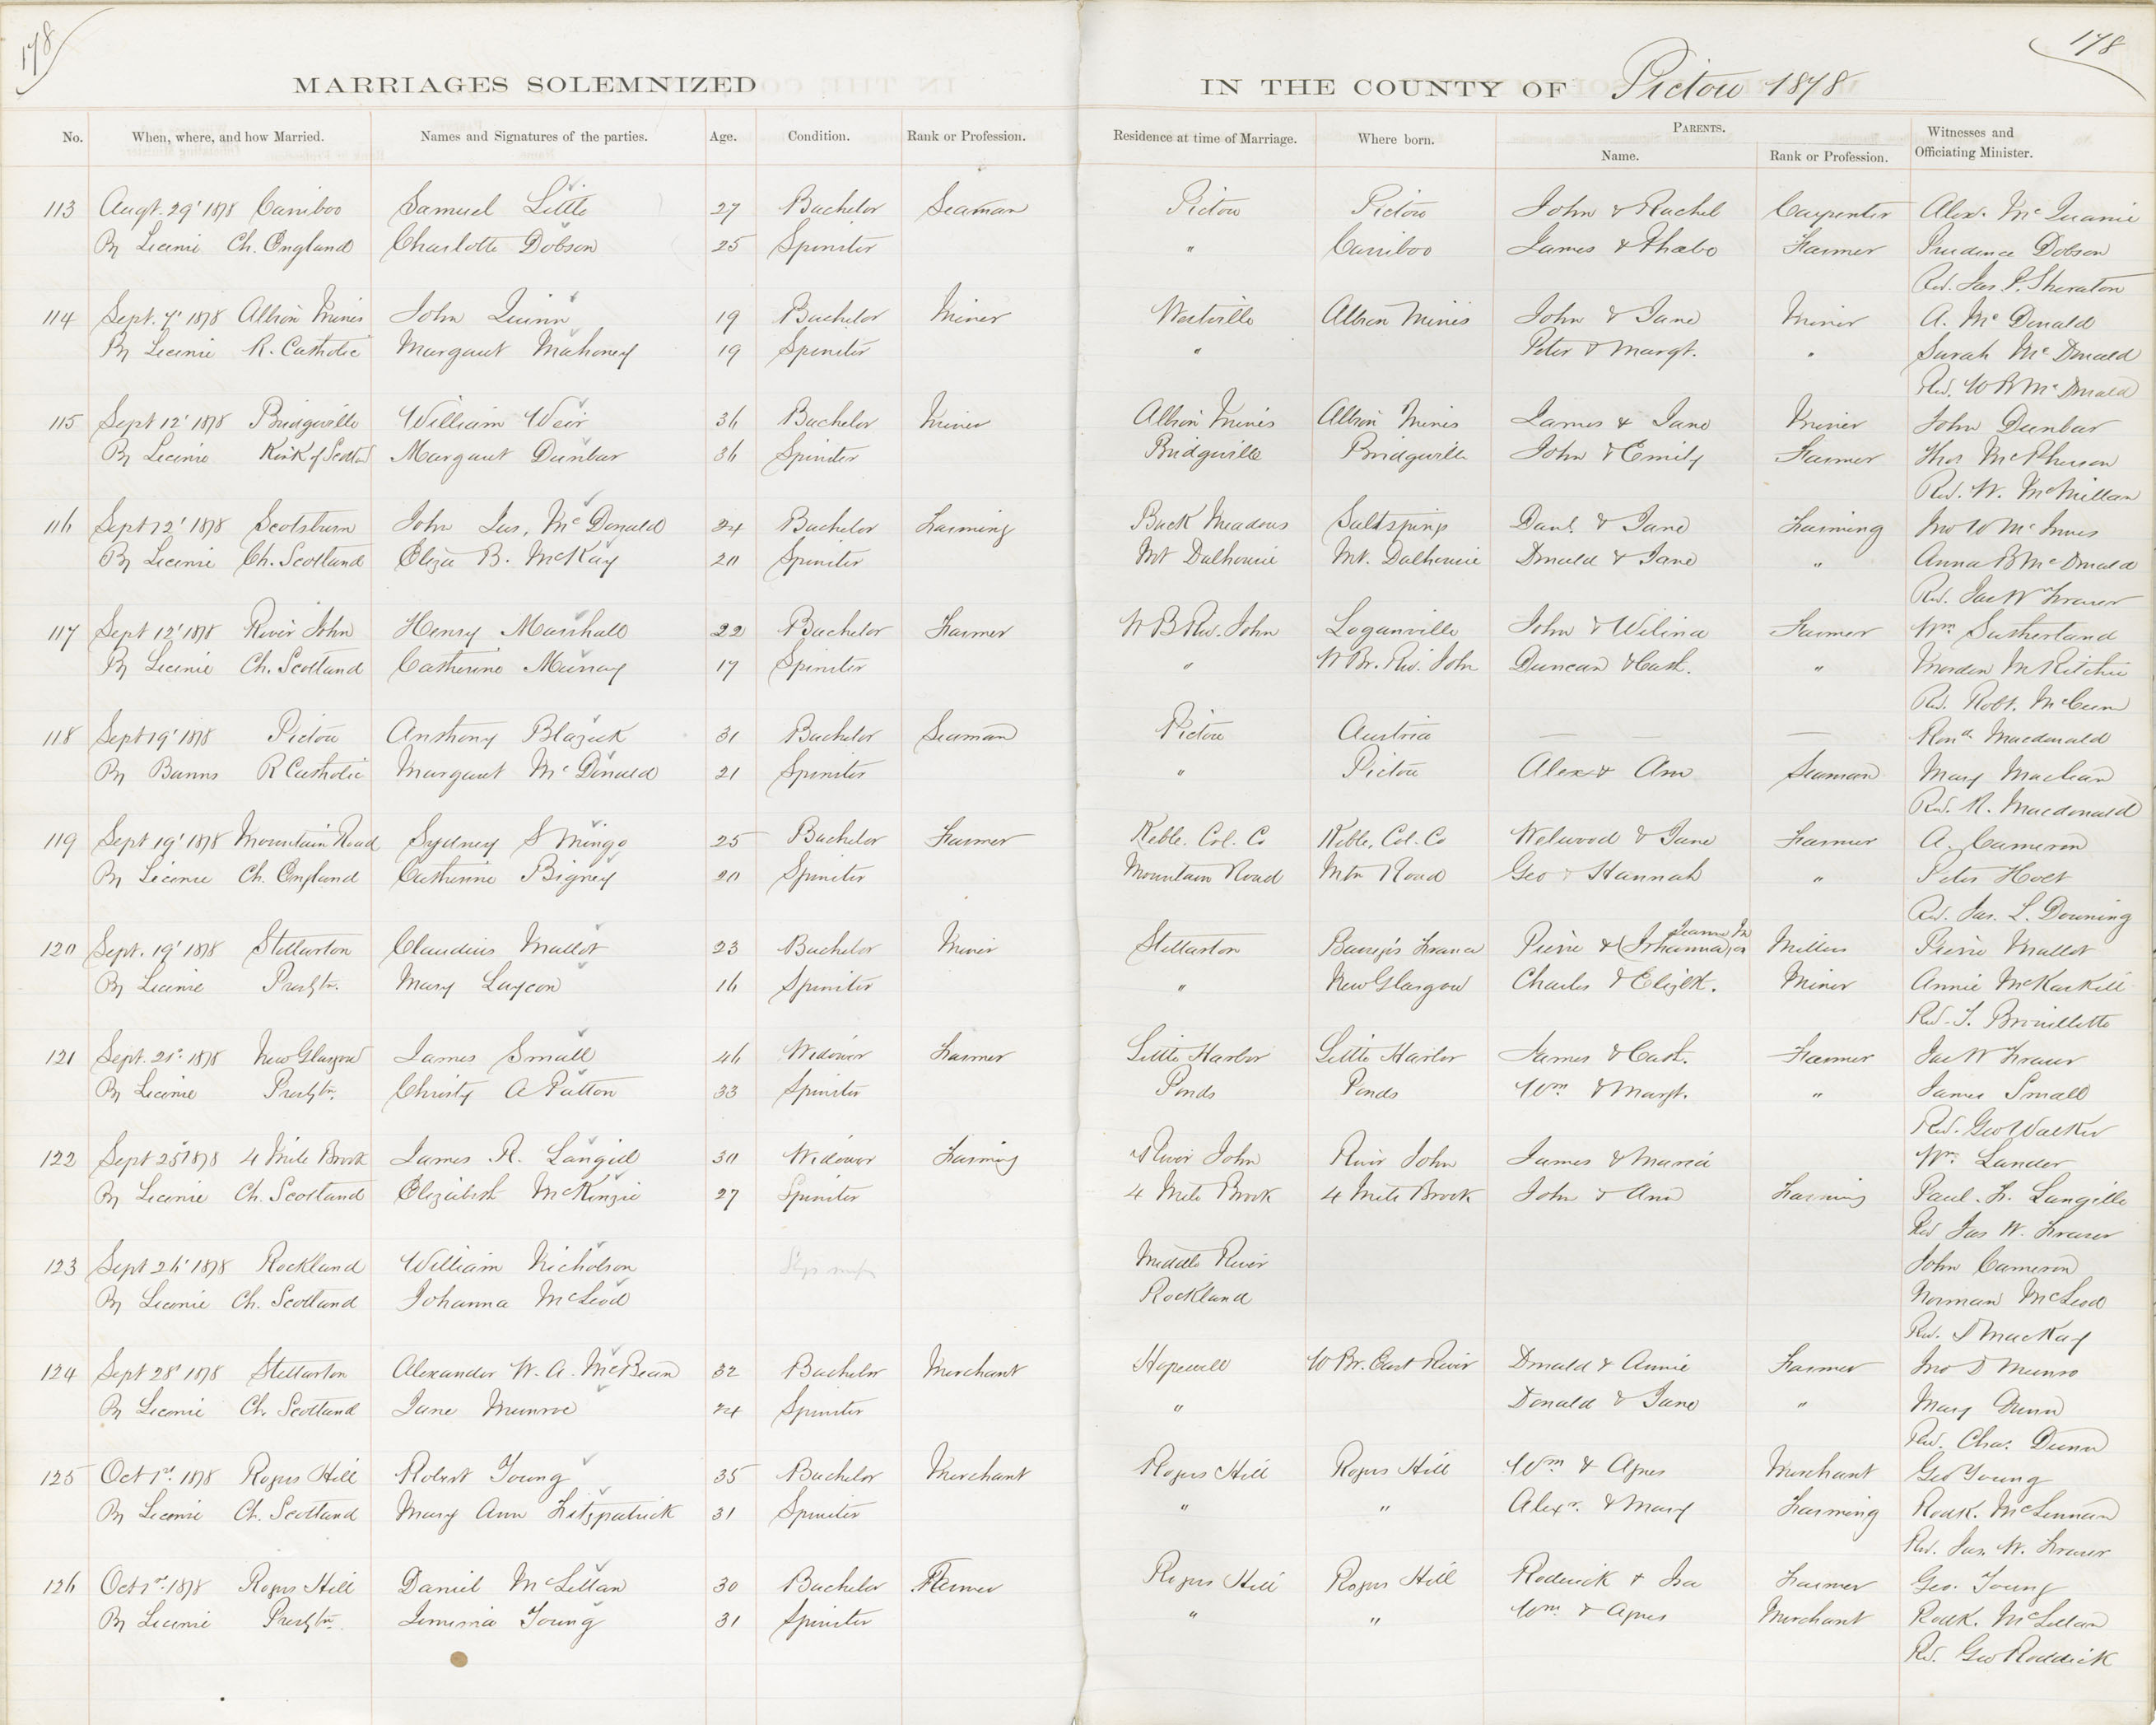 178
178
MARRIAGES SOLEMNIZED IN THE COUNTY OF Pictou 1878
No. When, where, and how Married. Names and Signatures of the parties. Age. Condition. Rank or Profession. Residence at time of Marriage. Where born. PARENTS. Witnesses and Officiating Minister.
Name. Rank or Profession.
113 Augt. 29' 1878 Cariboo Samuel Little 27 Bachelor Seaman Pictou Pictou John & Rachel Carpenter Alex. McQuarrie
By License Ch. England Charlotte Dobson 25 Spinster " Cariboo James & Phabe Farmer Prudence Dobson
Rev. Jas. P. Sheraton
114 Sept. 7' 1878 Albion Mines John Quinn 19 Bachelor Miner Westville Albion Mines John & Jane Miner A. McDonald
By License R. Catholic Margaret Mahoney 19 Spinster " Peter & Margt. " Sarah McDonald
Rev. W B McDonald
115 Sept 12' 1878 Bridgeville William Weir 36 Bachelor Miner Albion Mines Albion Mines James & Jane Miner John Dunbar
By License Kirk of Scotld Margaret Dunbar 36 Spinster Bridgeville Bridgeville John & Emily Farmer Thos McPherson
Rev. W. McMillan
116 Sept 12' 1878 Scotsburn John Jas. McDonald 24 Bachelor Farming Back Meadows Saltsprings Danl. & Jane Farming Jno W McInnes
By License Ch. Scotland Eliza B. McKay 20 Spinster Mt Dalhousie Mt. Dalhousie Donald & Jane " Anna B McDonald
Rev. Jas W Fraser
117 Sept 12' 1878 River John Henry Marshall 22 Bachelor Farmer W B Riv. John Loganville John & Wilina Farmer Wm Sutherland
By License Ch. Scotland Catherine Murray 17 Spinster " W Br. Riv. John Duncan & Cath. " Morden McRitchie
Rev. Robt. McCunn
118 Sept 19' 1878 Pictou Anthony Blazuk 31 Bachelor Seaman Pictou Austria — — — Rond. Macdonald
By Banns R Catholic Margaret McDonald 21 Spinster " Pictou Alex & Ann Seaman Mary Maclean
Rev. R. Macdonald
119 Sept 19' 1878 Mountain Road Sydney S Mingo 25 Bachelor Farmer Kebble. Col. Co Kebble, Col. Co Welwood & Jane Farmer A. Cameron
By License Ch. England Catherine Bigney 20 Spinster Mountain Road Mtn Road Geo & Hannah " Peter Holt
Rev. Jas. L. Downing
120 Sept. 19' 1878 Stellarton Claudius Mallet 23 Bachelor Miner Stellarton France Pierre & (Johanna Millier Pierre Mallet
By License Presbtn. Mary Laycon 16 Spinster " New Glasgow Charles & Elizbth. Miner Annie McKaskill
Rev. J. Brouillette
121 Sept. 21st 1878 New Glasgow James Small 46 Widower Farmer Little Harbor Little Harbor James & Cath. Farmer Jas W Fraser
By License Presbtn. Christy A Patton 33 Spinster Ponds Ponds Wm & Margt. " James Small
Rev. Geo Walker
122 Sept 25' 1878 4 Mile Brook James R. Langill 30 Widower Farming River John River John James & Maria Wm. Lander
By License Ch. Scotland Elizabeth McKenzie 27 Spinster 4 Mile Brook 4 Mile Brook John & Ann Farming Paul. F. Langille
Rev Jas W. Fraser
123 Sept 26' 1878 Rockland William Nicholson Middle River John Cameron
By License Ch. Scotland Johanna McLeod Rockland Norman McLeod
Rev. D MacKay
124 Sept 28' 1878 Stellarton Alexander W. A. McBean 32 Bachelor Merchant Hopewell W Br. East River Donald & Annie Farmer Jno D Munro
By License Ch. Scotland Jane Munroe 24 Spinster " Donald & Jane " Mary Dunn
Rev. Chas. Dunn
125 Oct 1st. 1878 Rogers Hill Robert Young 35 Bachelor Merchant Rogers Hill Rogers Hill Wm & Agnes Merchant Geo Young
By License Ch. Scotland Mary Ann Fitzpatrick 31 Spinster " " Alexr. & Mary Farming Rodk. McLennan
Rev. Jas. W. Fraser
126 Oct 1st. 1878 Rogers Hill Daniel McLellan 30 Bachelor Farmer Rogers Hill Rogers Hill Roderick & Isa Farmer Geo. Young
By License Presbtn. Jemima Young 31 Spinster " " Wm. & Agnes Merchant Rodk. McLellan
Rev. Geo Roddick